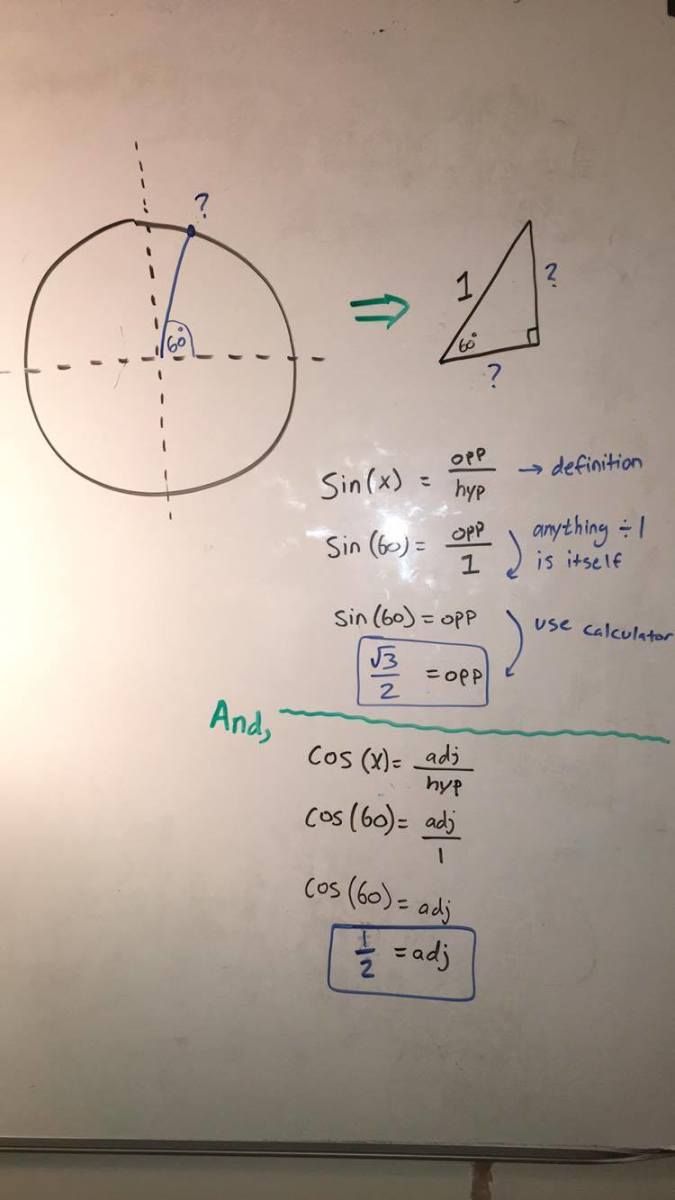 ?
60°
1
?
60°
?
Sin(x) = opp/hyp → definition
Sin(60) = opp/1 anything ÷ 1
is itself
Sin(60) = opp use calculator
√3/2 = opp
And,
Cos(x) = adj/hyp
Cos(60) = adj/1
Cos(60) = adj
1/2 = adj